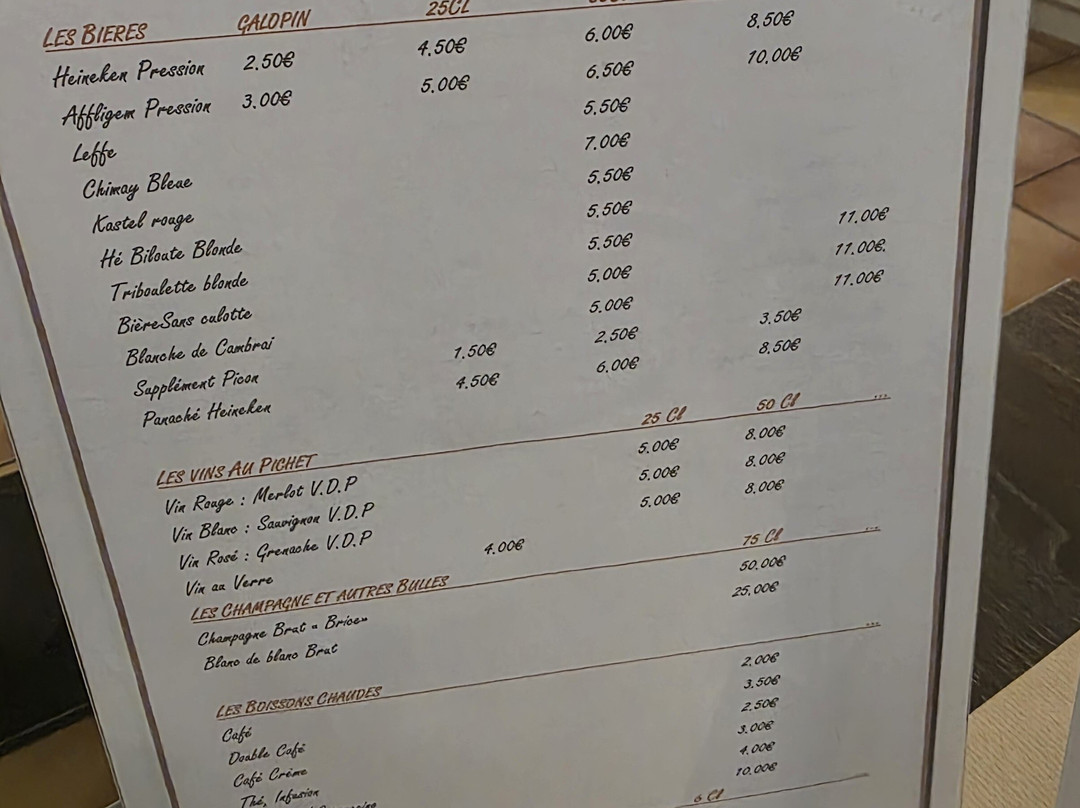 LES BIERES GALOPIN 25CL
Heineken Pression 2.50€ 4.50€ 6.00€ 8.50€
Affligem Pression 3.00€ 5.00€ 6.50€ 10.00€
Leffe 5.50€
Chimay Bleue 7.00€
Kastel rouge 5.50€
Hé Biloute Blonde 5.50€
Triboulette blonde 5.50€ 11.00€
BièreSans culotte 5.00€ 11.00€.
Blanche de Cambrai 5.00€ 11.00€
Supplément Picon 1.50€ 2.50€ 3.50€
Panaché Heineken 4.50€ 6.00€ 8.50€
LES VINS AU PICHET 25 Cl 50 Cl ...
Vin Rouge : Merlot V.D.P 5.00€ 8.00€
Vin Blanc : Sauvignon V.D.P 5.00€ 8.00€
Vin Rosé : Grenache V.D.P 5.00€ 8.00€
Vin au Verre 4.00€
LES CHAMPAGNE ET AUTRES BULLES 75 Cl ...
Champagne Brut « Brice» 50.00€
Blanc de blanc Brut 25.00€
LES BOISSONS CHAUDES ...
Café 2.00€
Double Café 3.50€
Café Crème 2.50€
Thé, Infusion 3.00€
4.00€
10.00€
6 Cl